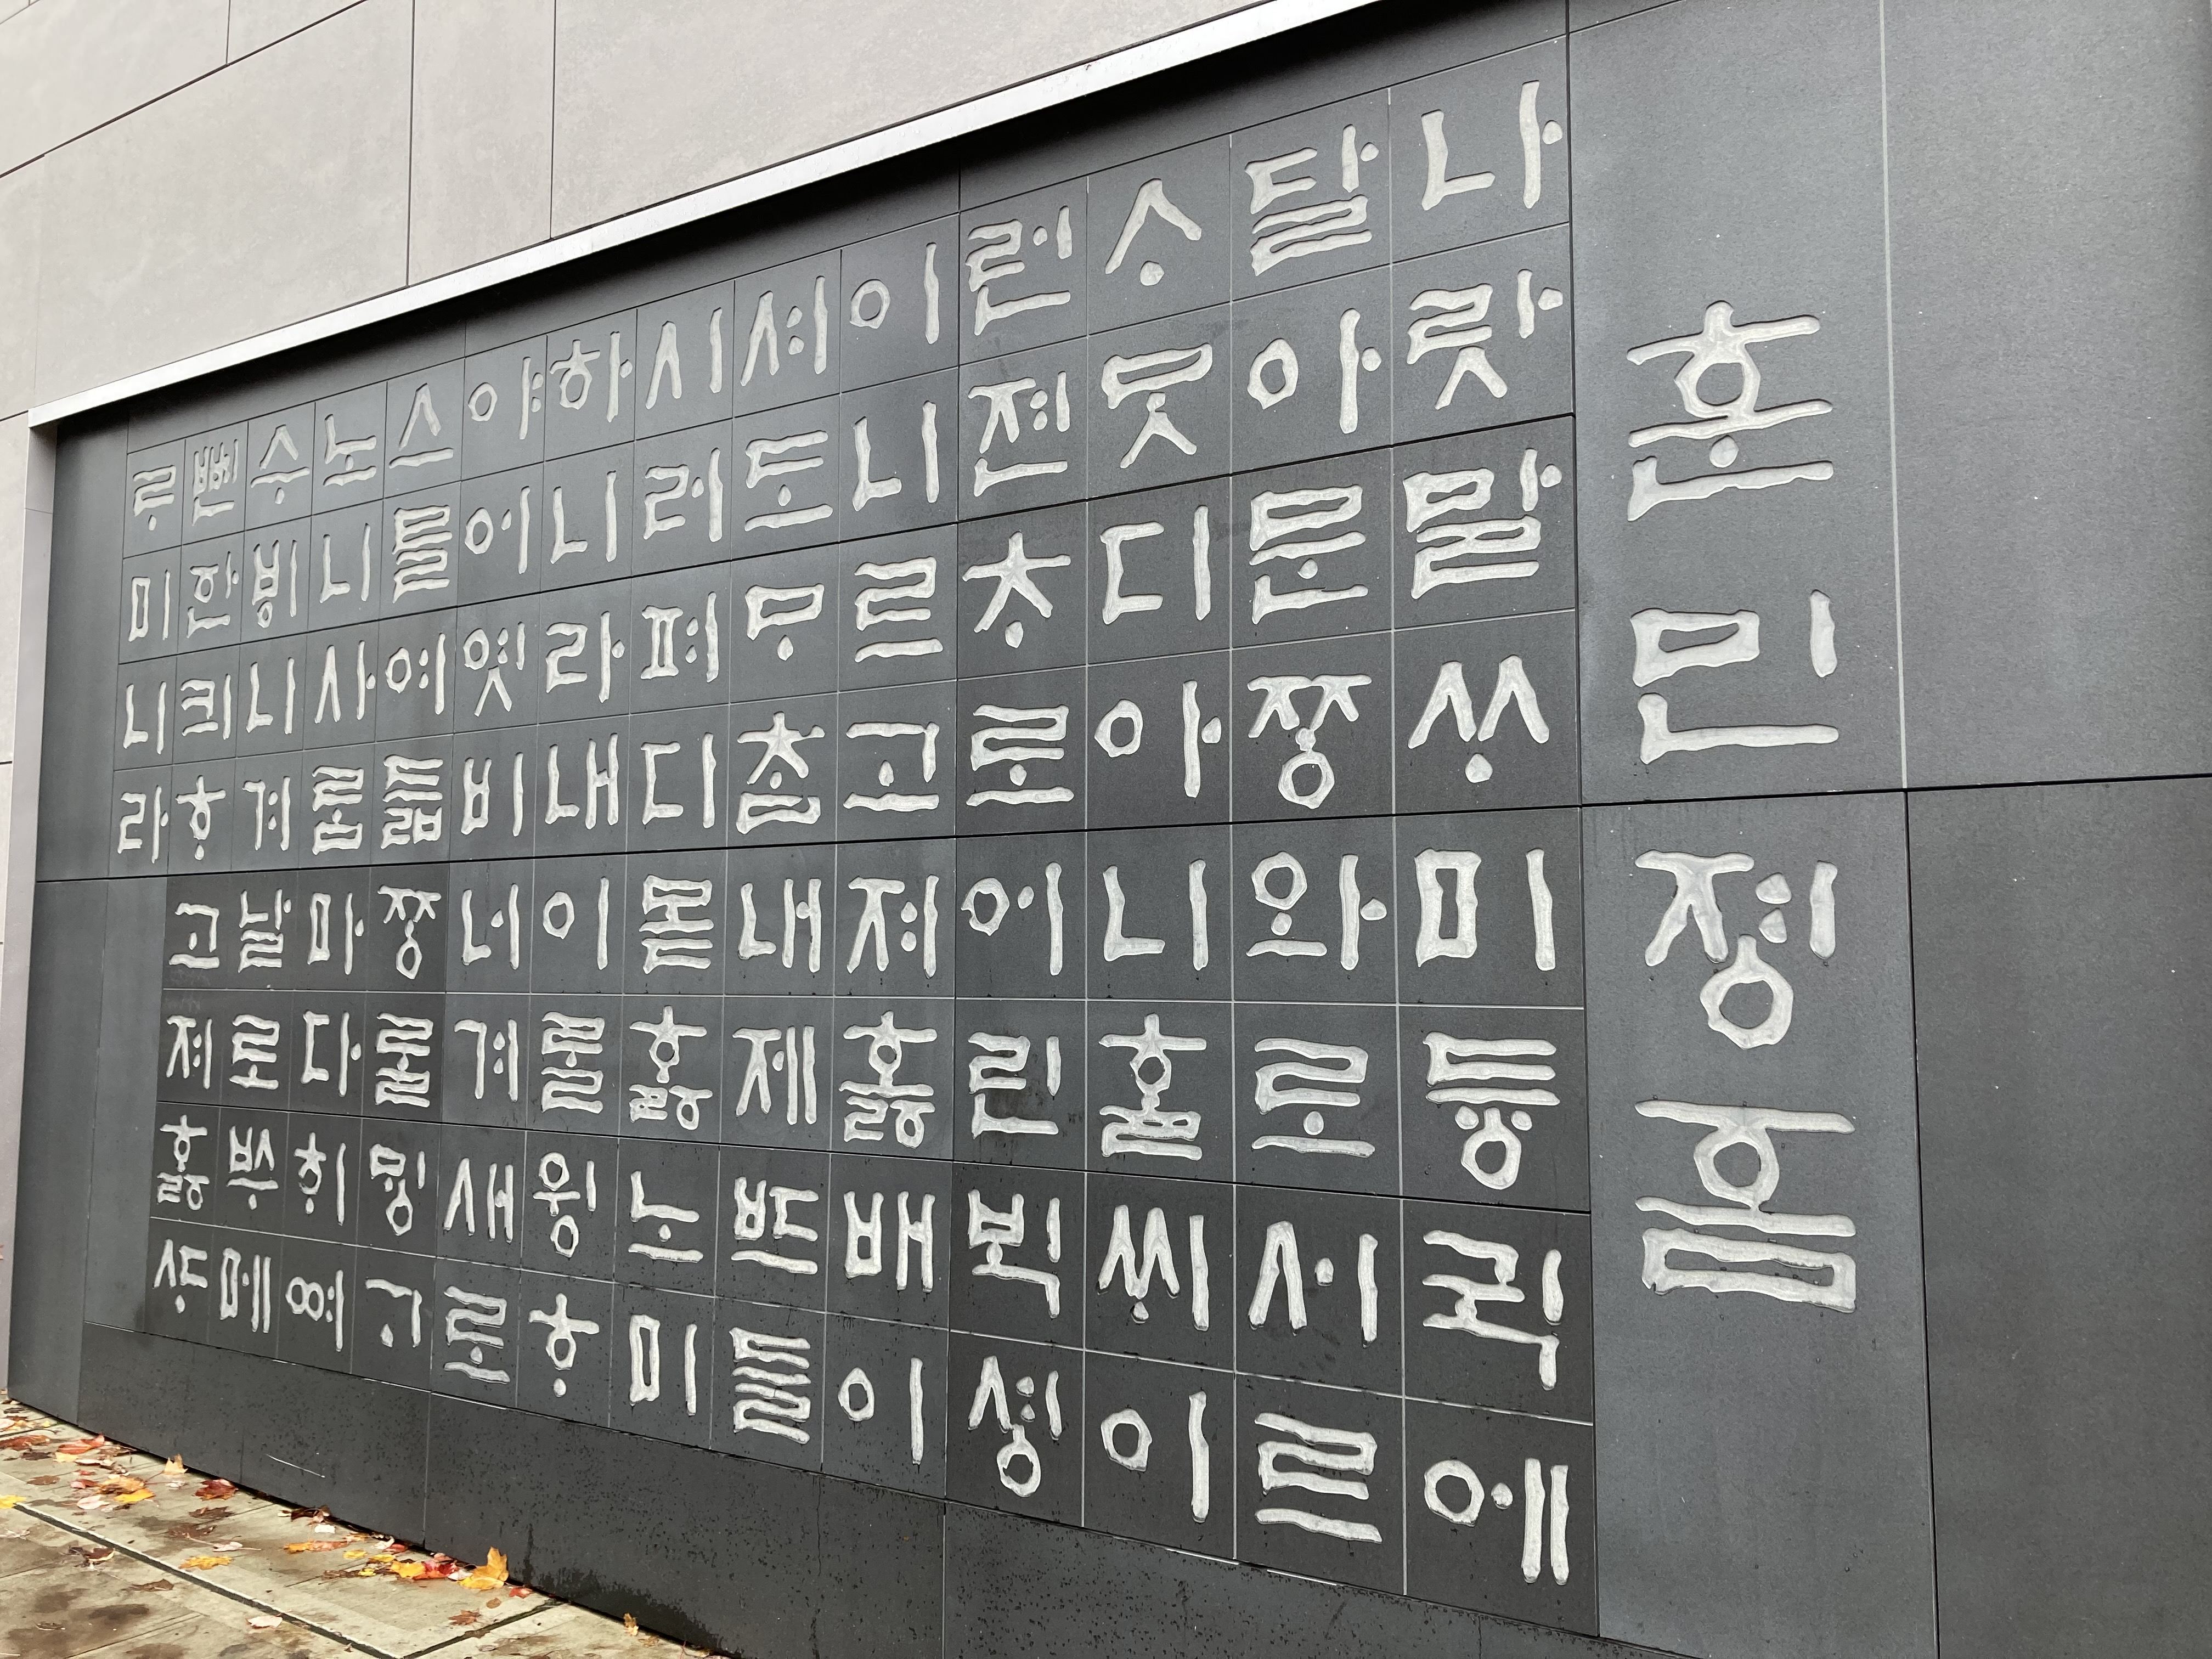 훈민졍ᅙᅳᆷ
나랏말ᄊᆞ미듕귁에
달아문ᄍᆞᆼ와로서르
ᄉᆞᄆᆞᆺ디아니ᄒᆞᆯᄊᆡ이
런젼ᄎᆞ로어린ᄇᆡᆨ셩
이니르고져ᄒᆞᇙ배이
셔도ᄆᆞᄎᆞᆷ내제ᄠᅳ들
시러펴디몯ᄒᆞᇙ노미
하니라내이ᄅᆞᆯ윙ᄒᆞ
야어엿비너겨새로
스믈여듧ᄍᆞᆼᄅᆞᆯᄆᆡᇰᄀᆞ
노니사ᄅᆞᆷ마다ᄒᆡ여
수ᄫᅵ니겨날로ᄡᅮ메
뼌ᅙᅡᆫ킈ᄒᆞ고져ᄒᆞᇙᄯᆞ
ᄅᆞ미니라